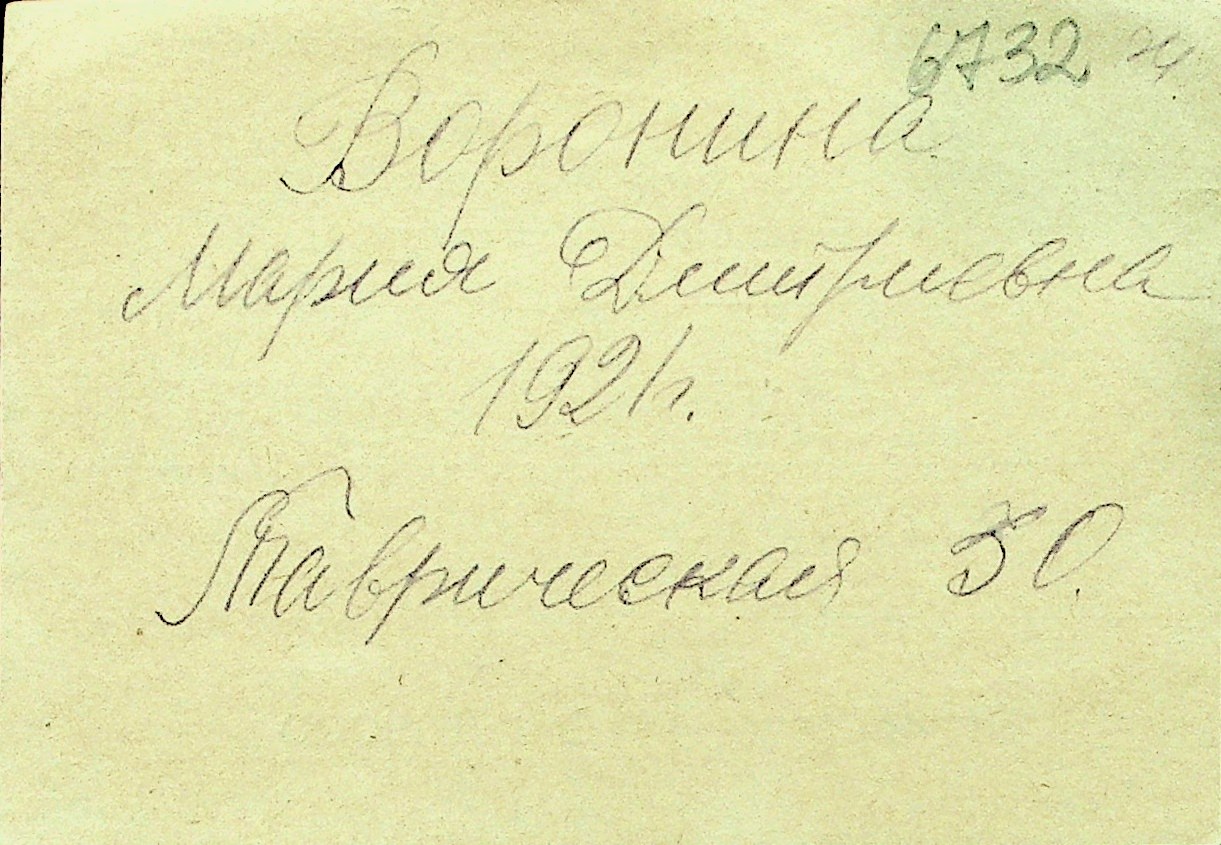 6732
Воронина
Мария Дмитриевна
1921г.
Таврическая 30.